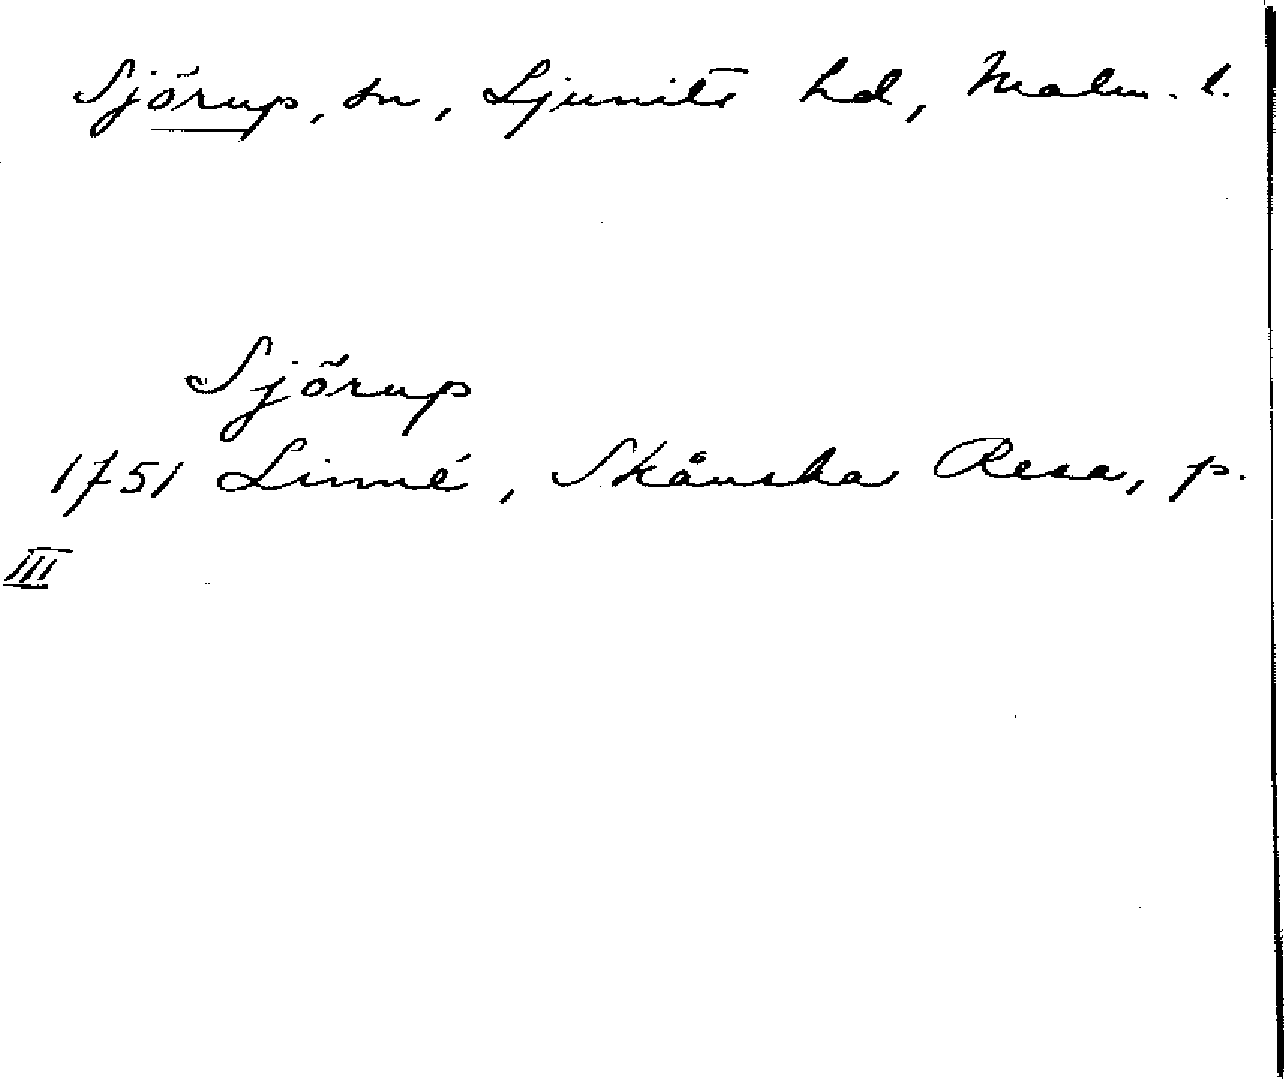 Sjörup, sn, Ljunits hd, Malm. l.
Sjörup
1751 Linné, Skånska Resa, p.
III